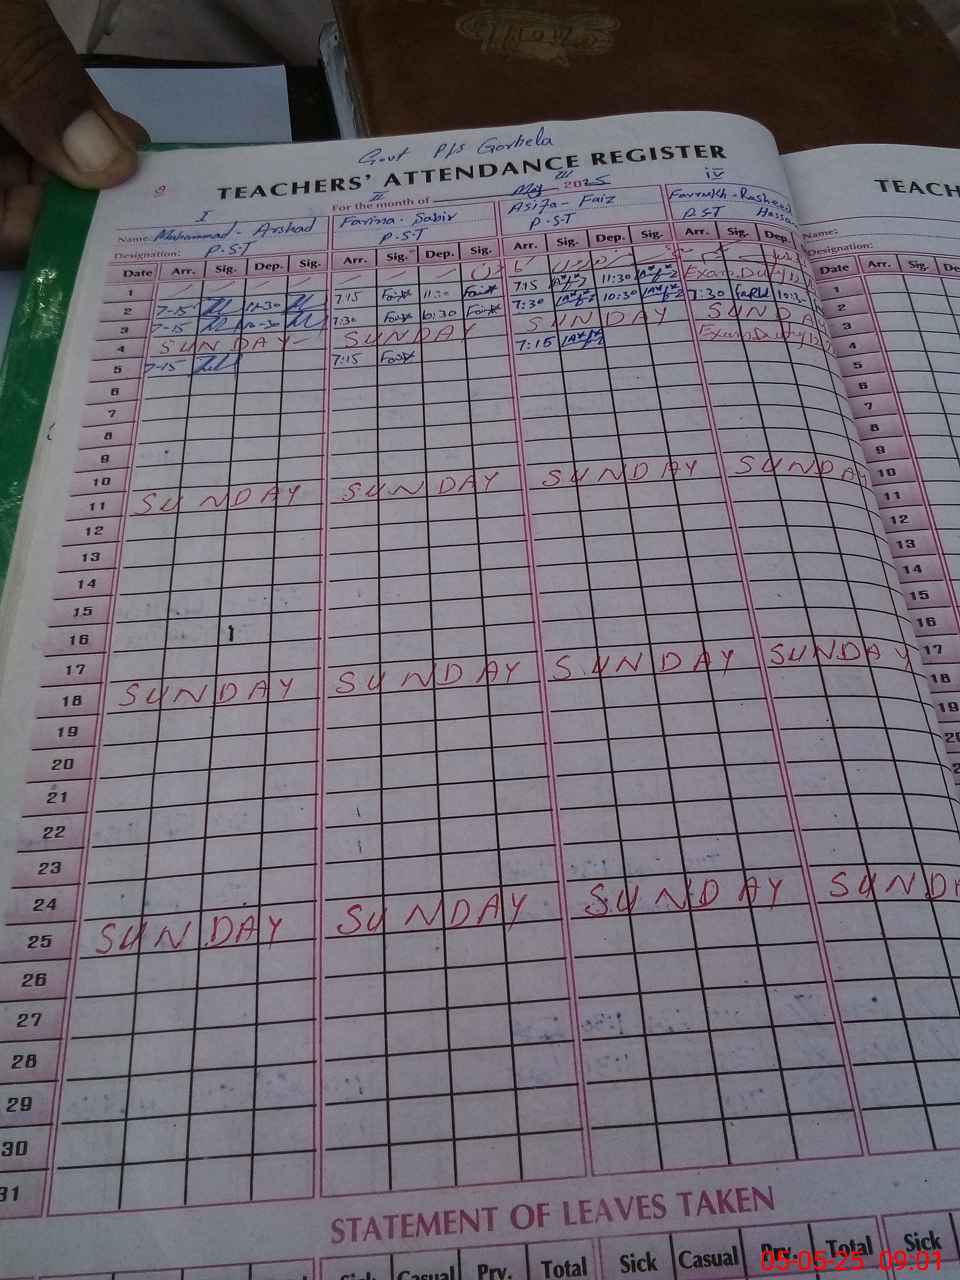 Govt P/S Gorhela
9 TEACHERS' ATTENDANCE REGISTER TEACH
For the month of May 2025
I II III iv
Name: Muhammad - Arshad Farina - Sabir Asifa - Faiz Farrukh - Rasheed Hassan Name:
Designation: P.S.T P.S.T P.S.T P.S.T Designation:
Date Arr. Sig. Dep. Sig. Arr. Sig. Dep. Sig. Arr. Sig. Dep. Sig. Arr. Sig. Dep. Date Arr. Sig. De
1 1
2 7-15 11-30 7:15 11:30 7:15 11:30 Exam Duty 2
3 7-15 10-30 7:30 10:30 7:30 10:30 7:30 10:3 3
4 SUNDAY SUNDAY SUNDAY SUNDA 4
5 7-15 7:15 7:15 Exam Duty 5
6 6
7 7
8 8
9 9
10 10
11 SUNDAY SUNDAY SUNDAY SUNDAY 11
12 12
13 13
14 14
15 15
16 16
17 17
18 SUNDAY SUNDAY SUNDAY SUNDAY 18
19 19
20 20
21 2
22
23
24
25 SUNDAY SUNDAY SUNDAY SUNDA
26
27
28
29
30
31
STATEMENT OF LEAVES TAKEN
Sick Casual Prv. Total Sick Casual Prv. Total Sick
05-05-25 09:01